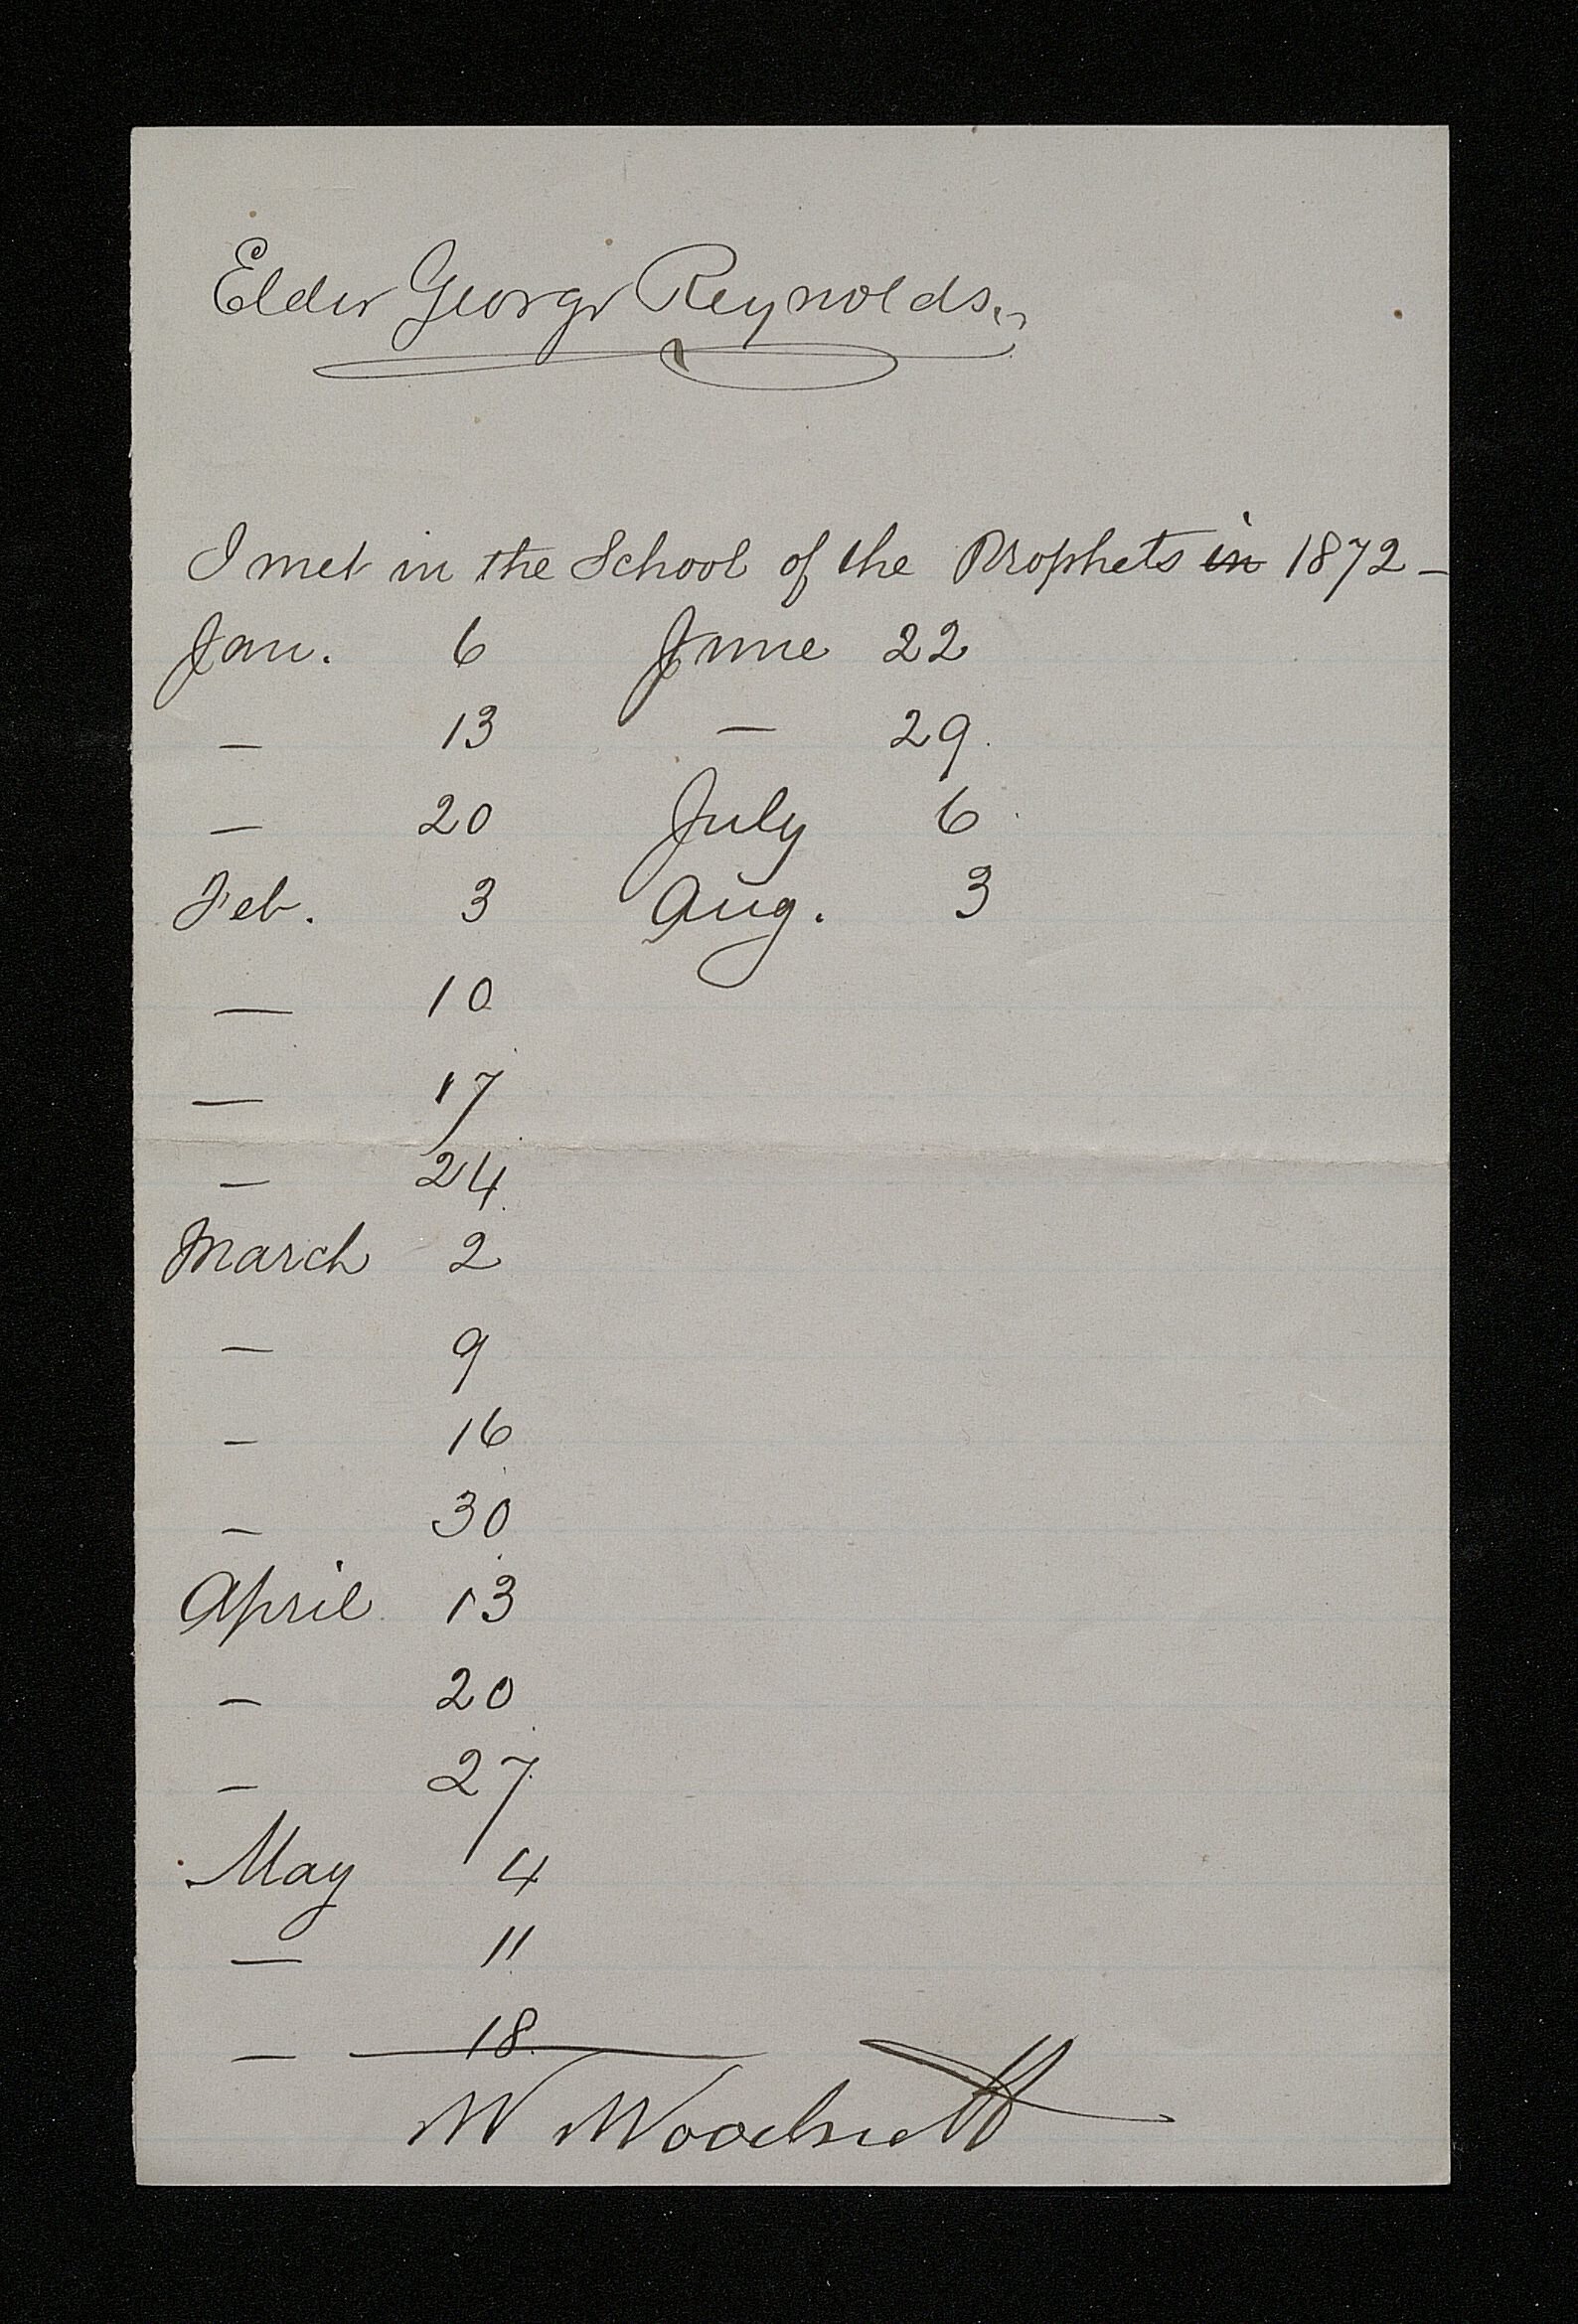 Elder George Reynolds.,
I met in the School of the Prophets in 1872 –
Jan. 6 June 22
– 13 – 29.
– 20 July 6
Feb. 3 Aug. 3
– 10
– 17
– 24
March 2
– 9
– 16
– 30
April 13
– 20
– 27
May 4
– 11
– 18.
W Woodruff